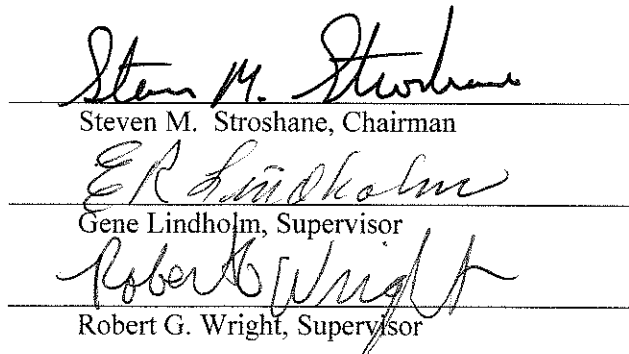 Steven M. Stroshane
Steven M. Stroshane, Chairman
E R Lindholm
Gene Lindholm, Supervisor
Robert G Wright
Robert G. Wright, Supervisor